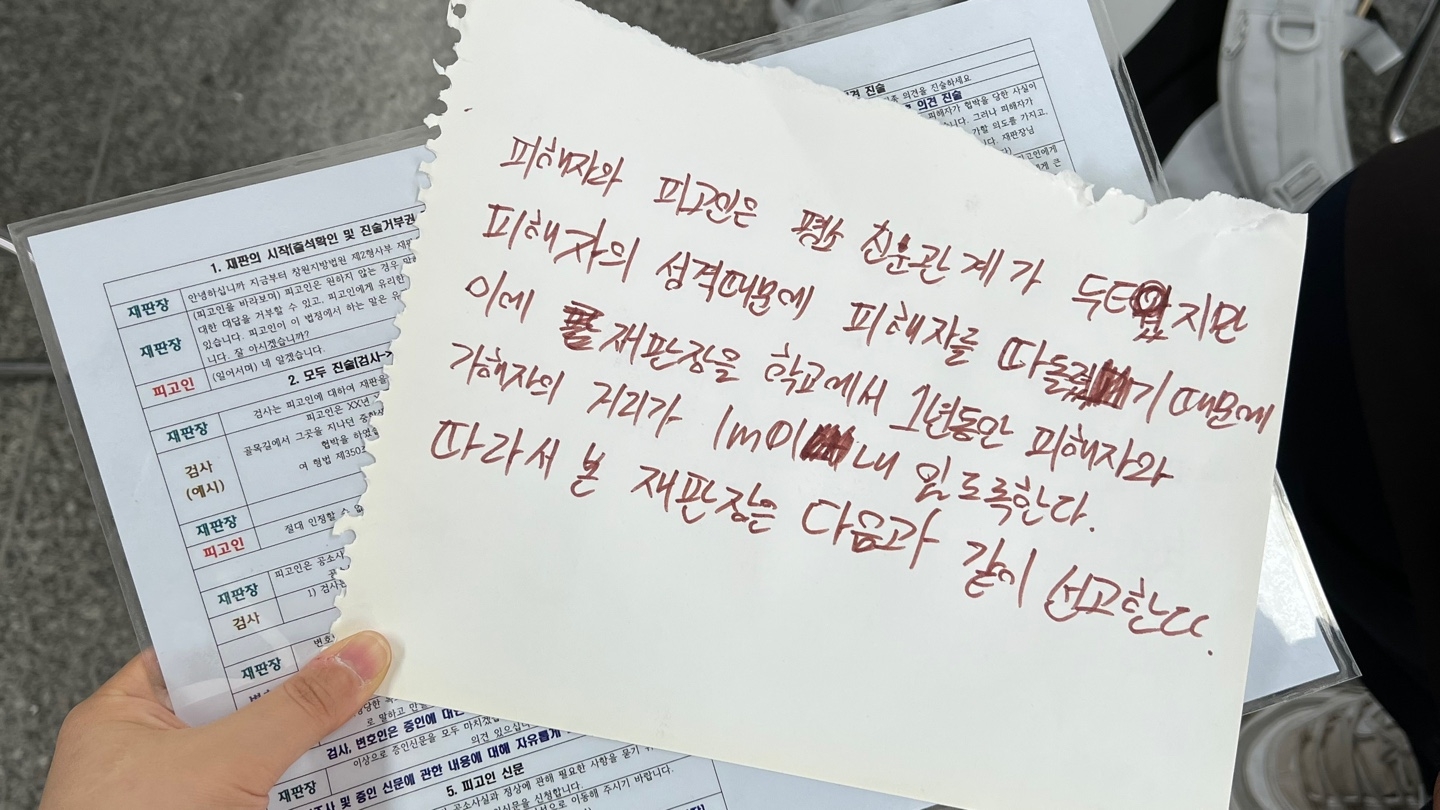 피해자와 피고인은 평소 친분관계가 두터웠지만
피해자의 성격때문에 피해자를 따돌렸기 때문에
이에 재판장을 학교에서 1년동안 피해자와
가해자의 거리가 1m이내 있도록한다.
따라서 본 재판장은 다음과 같이 선고한다.
1. 재판의 시작(출석확인 및 진술거부권
재판장
안녕하십니까 지금부터 창원지방법원 제2형사부 재판
재판장
(피고인을 바라보며) 피고인은 원하지 않는 경우
대한 대답을 거부할 수 있고, 피고인에게 유리한
있습니다. 피고인이 이 법정에서 하는 말은
니다. 잘 아시겠습니까?
피고인
(일어서며) 네 알겠습니다.
2. 모두 진술(검사->
재판장
검사는 피고인에 대하여 재판을
검사
(예시)
피고인은 XX년
골목길에서 그곳을 지나던
협박을 하였
여 형법 제350조
재판장
절대 인정할 수
피고인
재판장
피고인은 공소사
검사
1) 검사
재판장
변호
로 말하고
검사, 변호인은 증인에 대한
이상으로 증인신문을 모두 마치겠
의견 있으십니
재판장
및 증인 신문에 관한 내용에 대해 자유롭게
5. 피고인 신문
공소사실과 정상에 관해 필요한 사항을 묻기
신문을 신청합니다.
으로 이동해 주시기 바랍니다.
의견 진술
의견을 진술하세요
의견 진술
피해자가 협박을 당한 사실이
니다. 그러나 피해자가
가할 의도를 가지고,
니다. 재판장님
피고인에게
큰